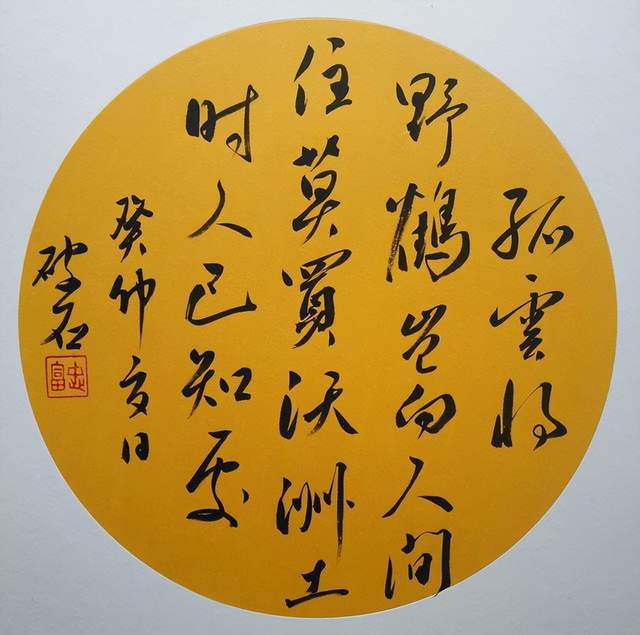 孤雲将
野鶴岂向人间
住莫買沃洲山
时人已知處
癸卯夏日
破石
忠富